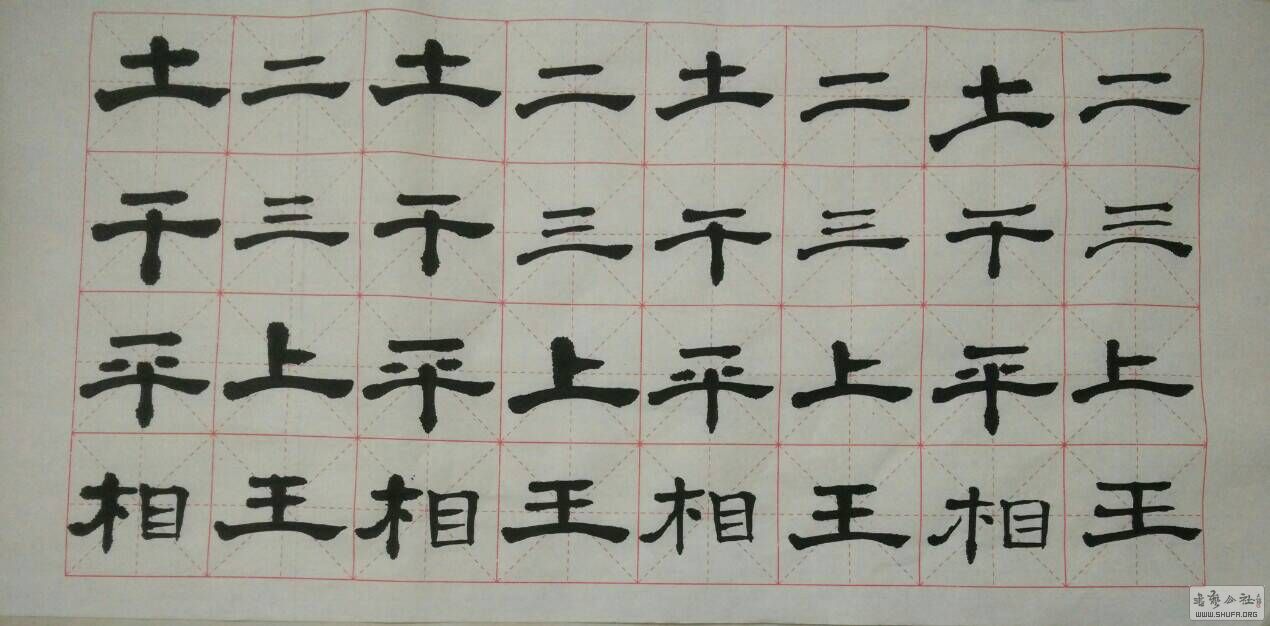 二三上王
土干平相
二三上王
土干平相
二三上王
土干平相
二三上王
土干平相
书艺公社
WWW.SHUFA.ORG